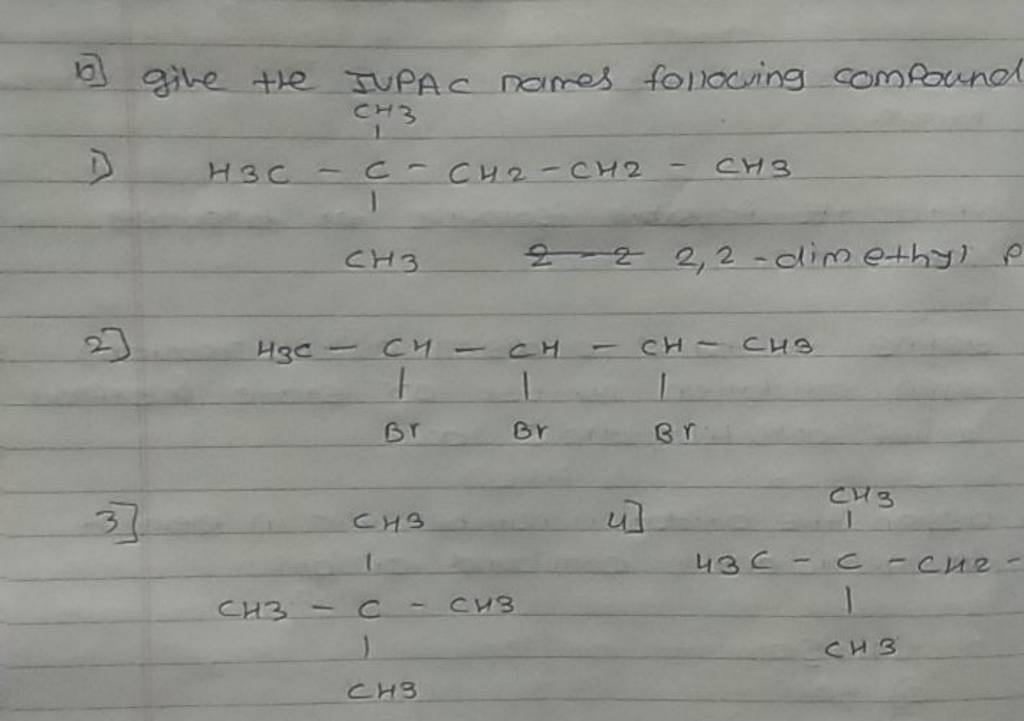 b] give the IUPAC names following compound
CH3
|
1) H3C - C - CH2 - CH2 - CH3
|
CH3 2,2-dimethyl p
2] H3C - CH - CH - CH - CH3
| | |
Br Br Br
CH3
3] CH3 4] |
| H3C - C - CH2 -
CH3 - C - CH3 |
| CH3
CH3